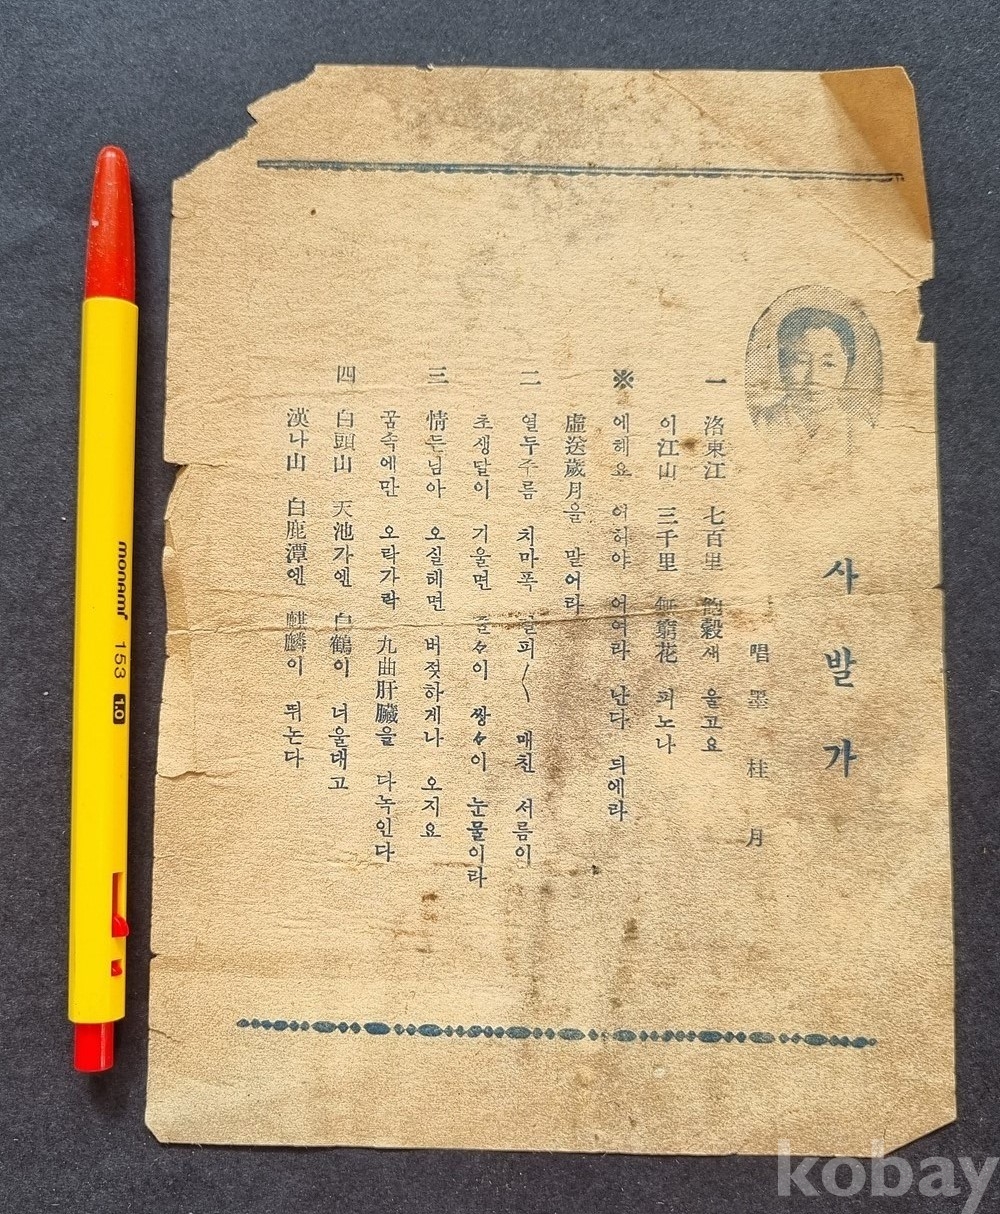 사발가
唱 墨桂月
一 洛東江 七百里 飽穀새 울고요
이江山 三千里 無窮花 피노나
※ 에헤요 어허야 어여라 난다 듸여라
虛送歲月을 말어라
二 열두주름 치마폭 갈피〱 매친 서름이
초생달이 기울면 줄々이 쌍々이 눈물이라
三 情든님아 오실테면 버젓하게나 오지요
꿈속에만 오락가락 九曲肝臟을 다녹인다
四 白頭山 天池가엔 白鶴이 너울대고
漢나山 白鹿潭엔 麒麟이 뛰논다
monami 153 1.0
kobay